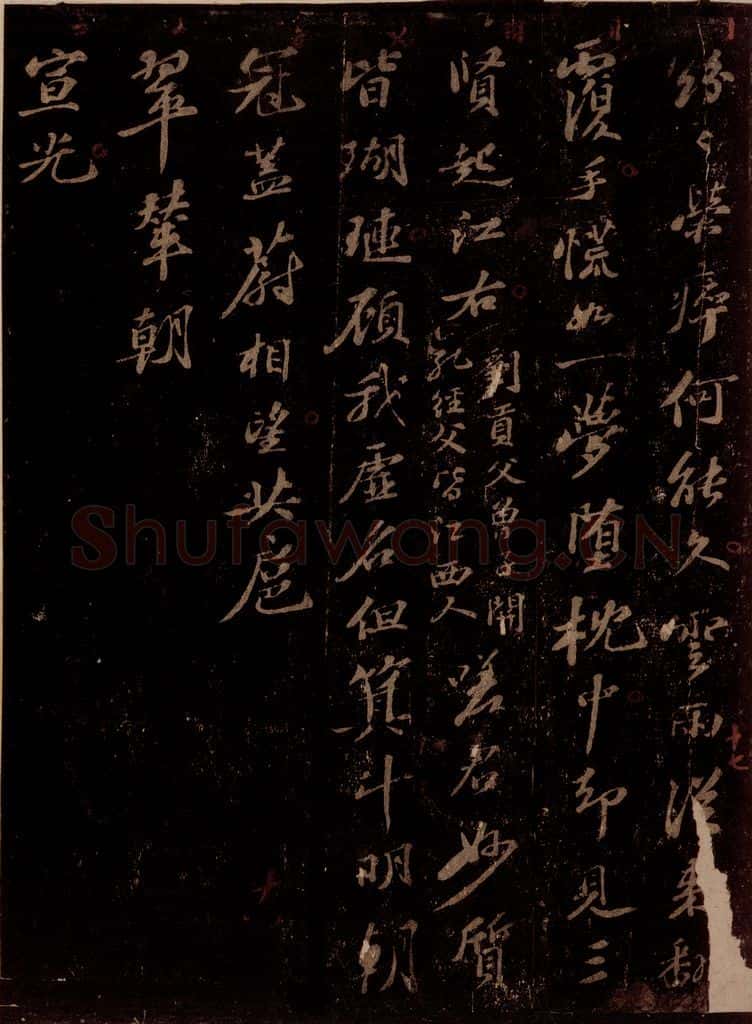 紛〻榮瘁何能久雲雨從來翻
覆手慌如一夢墮枕中却見三
賢起江右
劉貢父曾子開
孔經父皆江西人
嗟君妙質
皆瑚璉顧我虛名但箕斗明朝
冠蓋蔚相望共扈
翠輦朝
宣光
十七
Shufawang.CN